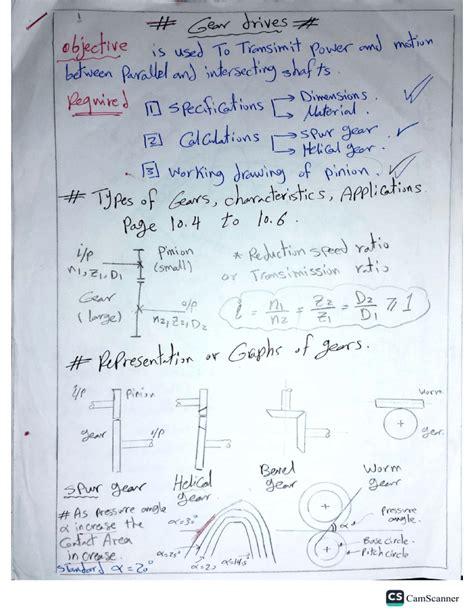 # Gear drives #
objective is used To Transimit Power and motion
between Parallel and intersecting shafts.
Required 1 specifications → Dimensions.
→ Material.
2 Calculations → spur gear.
→ Helical gear.
3 Working drawing of pinion.
# Types of Gears, characteristics, Applications.
Page 10.4 to 10.6.
i/p Pinion
n1, Z1, D1 (small)
* Reduction speed ratio
or Transimission ratio
Gear o/p
(large) n2, Z2, D2
i = n1/n2 = Z2/Z1 = D2/D1 ≥ 1
# Representation or Graphs of gears.
i/p Pinion
Worm
gear o/p
gear.
Spur gear
Helical gear
Bevel gear
Worm gear
# As pressure angle
α increase the
Contact Area
increase.
standard α = 20°
α=30°
α=25°
Pressure angle.
α
Base circle.
Pitch circle
CS CamScanner